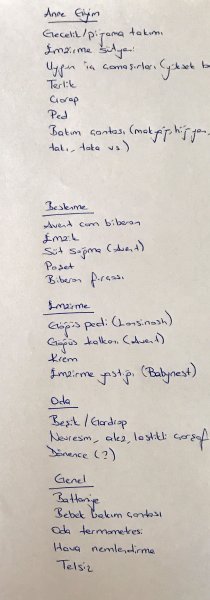 Anne Giyim
Gecelik/pijama takımı
Emzirme sütyeni
Uygun iç çamaşırları (yüksek b
Terlik
Çorap
Ped
Bakım çantası (makyaj, hijyen,
takı, toka vs)
Beslenme
Avent cam biberon
Emzik
Süt sağma (Avent)
Poşet
Biberon fırçası
Emzirme
Göğüs pedi (Lansinoh)
Göğüs kalkanı (Avent)
Krem
Emzirme yastığı (Babynest)
Oda
Beşik/Gardrop
Nevresim, alez, lastikli çarşaf
Dönence (?)
Genel
Battaniye
Bebek bakım çantası
Oda termometresi
Hava nemlendirme
Telsiz